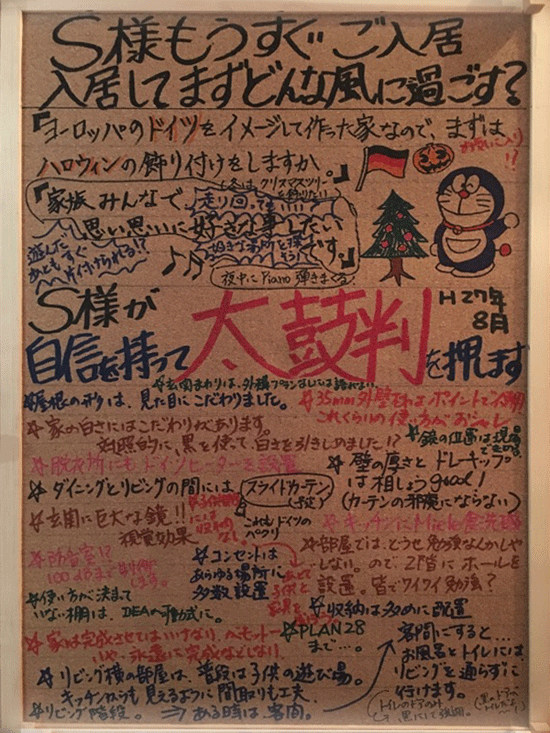 S様もうすぐご入居
入居してまずどんな風に過ごす?
『ヨーロッパのドイツをイメージして作った家なので、まずは
ハロウィンの飾り付けをしますか。』
お買い入り
!?
(冬はクリスマスツリー
を飾りたい)
『家族みんなで、走り回って
思い思いに好きな事したい
好きな場所を探
そう!
です。』
遊んだ
あともすぐ
片付けられる!?
夜中にPiano弾きまくる
S様が
H27年
8月
自信を持って太鼓判を押します
☆玄関まわりは、外構プランなしでは語れない。
☆屋根の形は、見た目にこだわりました。
☆35mm外壁
ポイントで
これくらいの使い方がおシャレ
☆家の白さにはこだわりがあります。
対照的に、黒を使って、白さを引きしめました!?
☆窓の位置は現場
☆脱衣所にもドイツヒーターを設置
☆壁の厚さとドレーキップ
は相しょうgood!
(カーテンの邪魔にならない)
☆ダイニングとリビングの間には
スライドカーテン
(予定)
これもドイツの
パクリ
☆玄関に巨大な鏡!!
視覚効果
☆キッチンにMiele食洗機
☆防音室!?
100dbまで
☆コンセントは
あらゆる場所に
多数設置
☆部屋では、どうせ勉強なんかしや
しない。ので2階にホールを
設置。皆でワイワイ勉強?
☆使い方が決まって
いない棚は、IDEAの可動式に。
☆収納は多めに配置
☆家は完成させてはいけない。がモットー!
いや、永遠に完成などしない。
☆PLAN28
まで…。
☆リビング横の部屋は、普段は子供の遊び場。
キッチンからも見えるように間取りも工夫。
⇒ある時は、客間。
☆リビング階段。
客間にすると…
お風呂とトイレには
リビングを通らずに
行けます。
トイレのドアのみ
黒にして